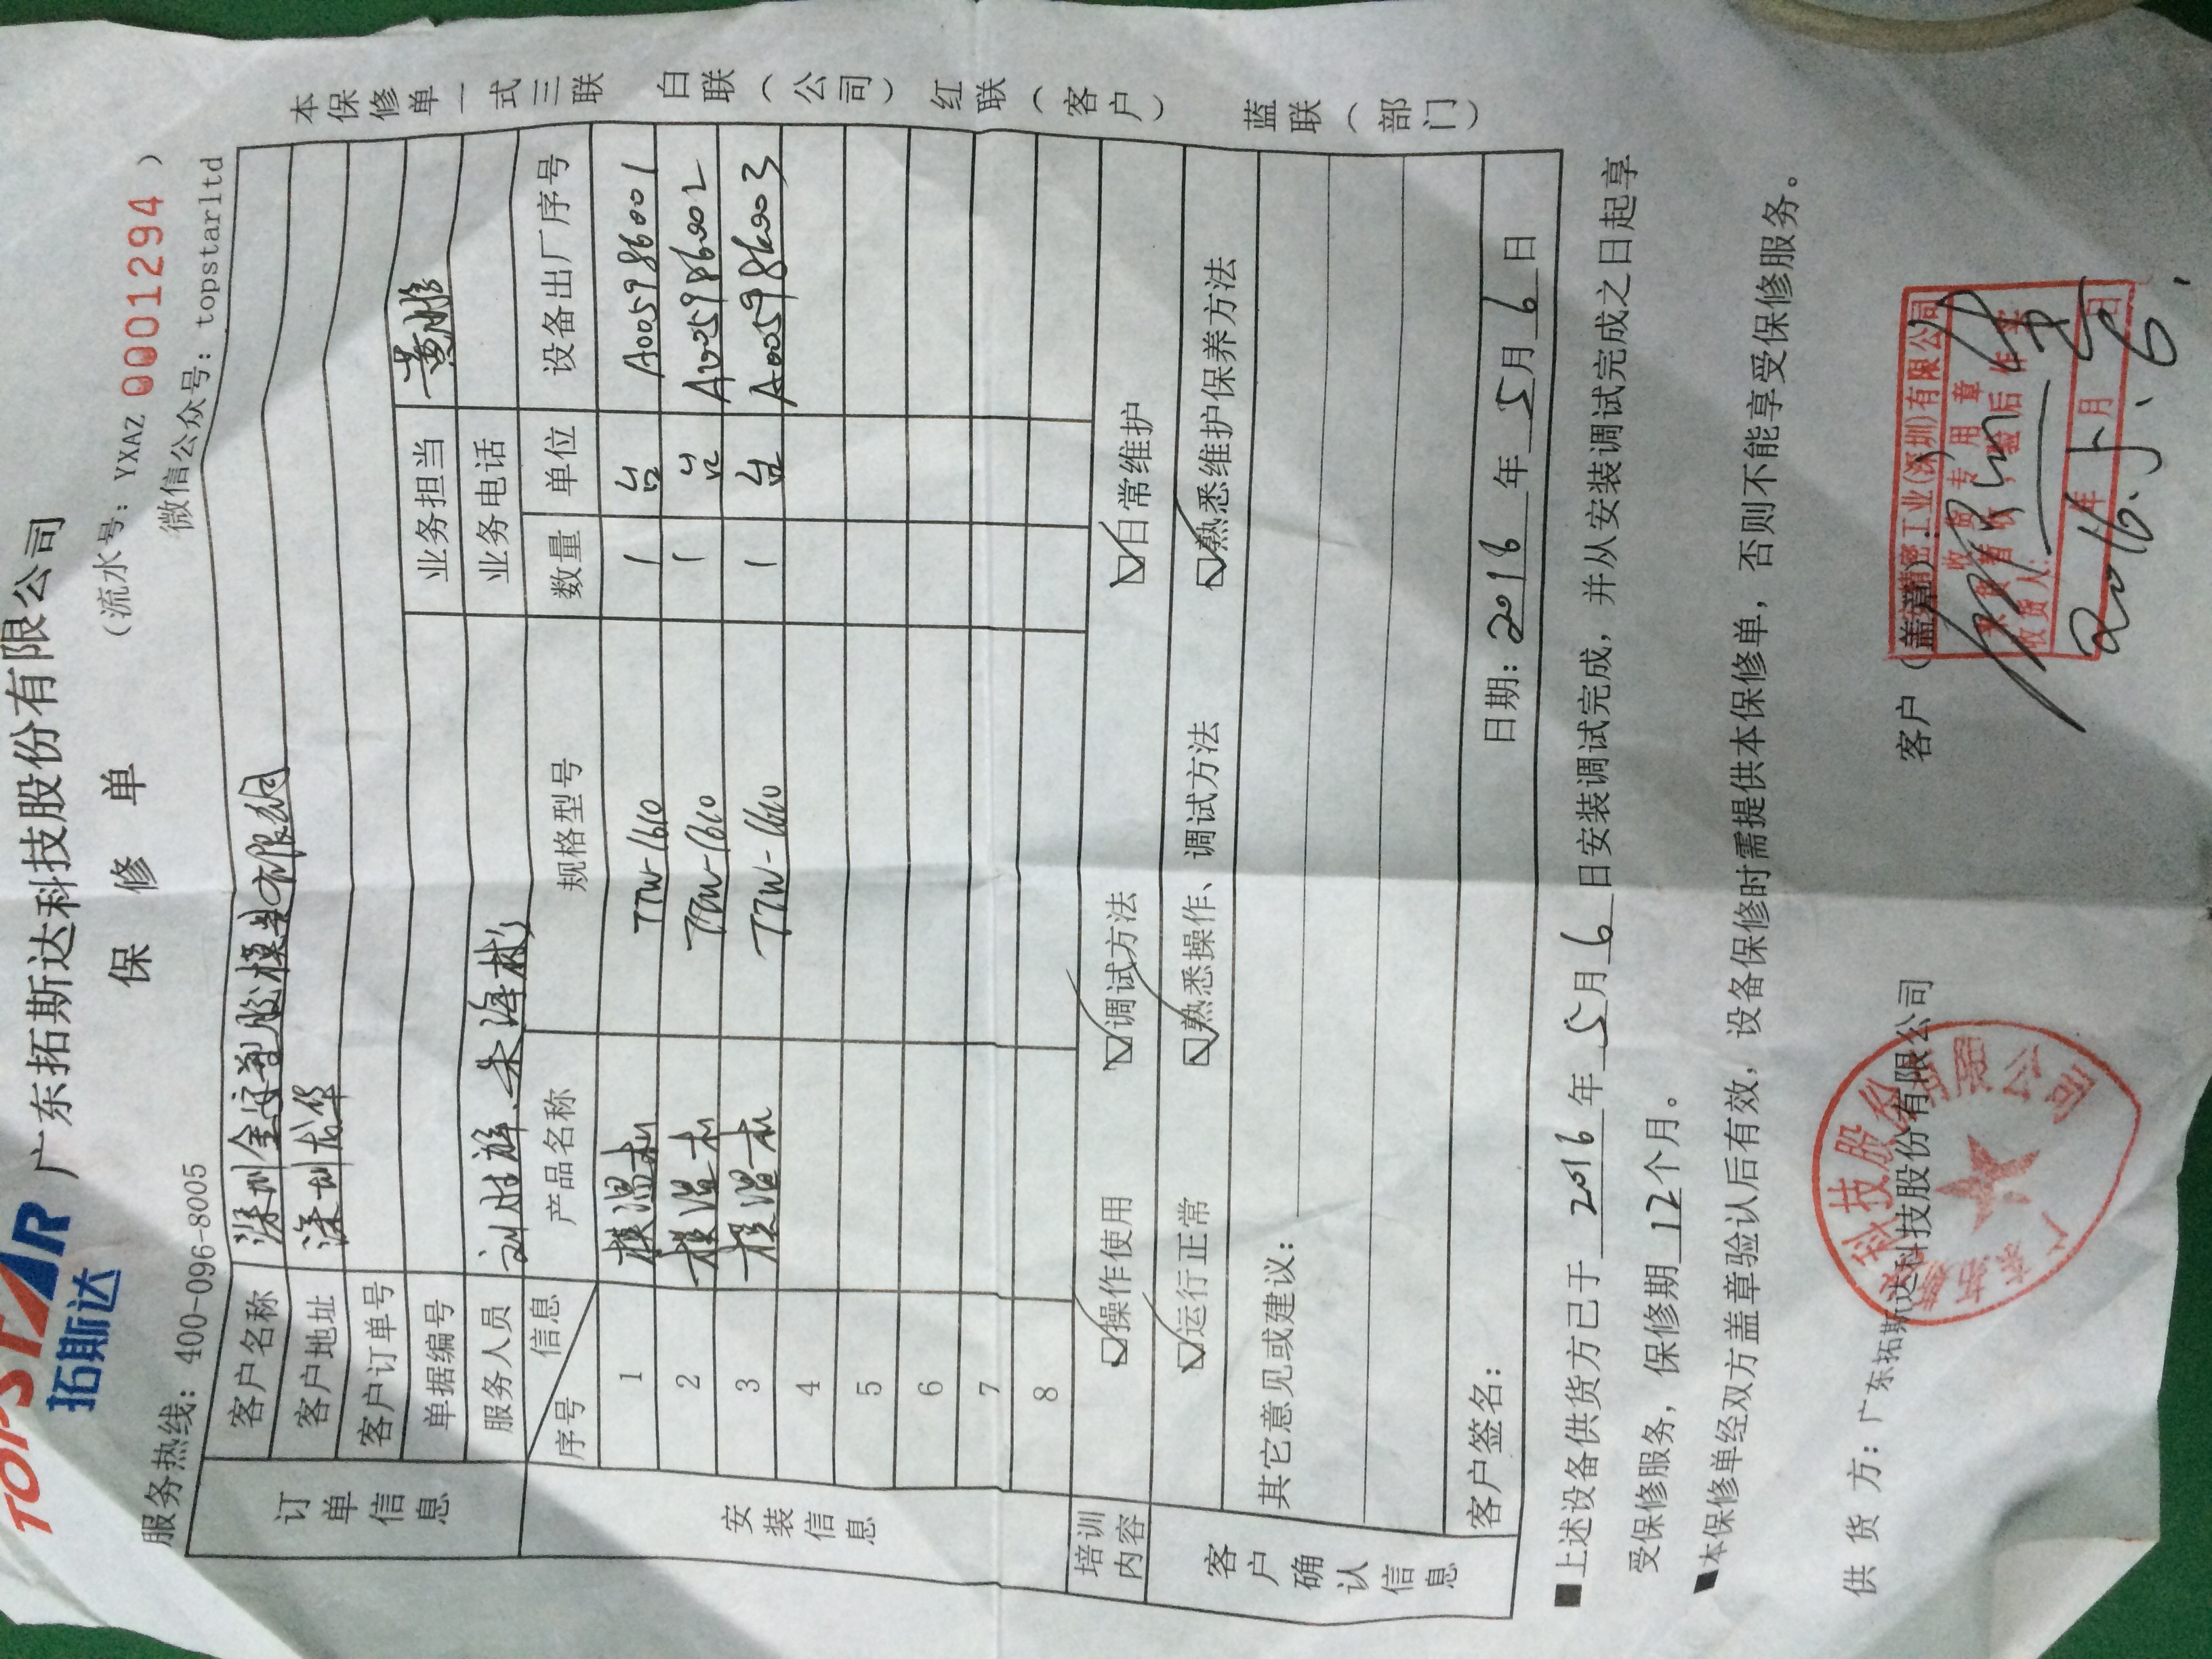 TOPSTAR
拓斯达
广东拓斯达科技股份有限公司
保 修 单
(流水号: YXAZ 0001294 )
服务热线: 400-096-8005
微信公众号: topstarltd
订单信息
客户名称 深圳金安塑胶模具有限公司
客户地址 深圳龙华
客户订单号
单据编号 业务担当
服务人员 朱海彬 业务电话
安装信息
序号 信息 产品名称 规格型号 数量 单位 设备出厂序号
1 模温机 TTW-1610 1 台 A005986001
2 模温机 TTW-1610 1 台 A005986002
3 模温机 TTW-1610 1 台 A005986003
4
5
6
7
8
培训内容 ☑操作使用 ☑调试方法 ☑日常维护
客户确认信息
☑运行正常 ☑熟悉操作、调试方法 ☑熟悉维护保养方法
其它意见或建议:
客户签名: 日期: 2016 年 5 月 6 日
■上述设备供货方已于 2016 年 5 月 6 日安装调试完成, 并从安装调试完成之日起享
受保修服务, 保修期 12 个月。
■本保修单经双方盖章验认后有效, 设备保修时需提供本保修单, 否则不能享受保修服务。
供 货 方: 广东拓斯达科技股份有限公司
客户 (盖章)
精密工业(深圳)有限公司
收货专用章
收货人:
年 月 日
2016.5.6
本保修单一式三联 白联(公司) 红联(客户) 蓝联(部门)